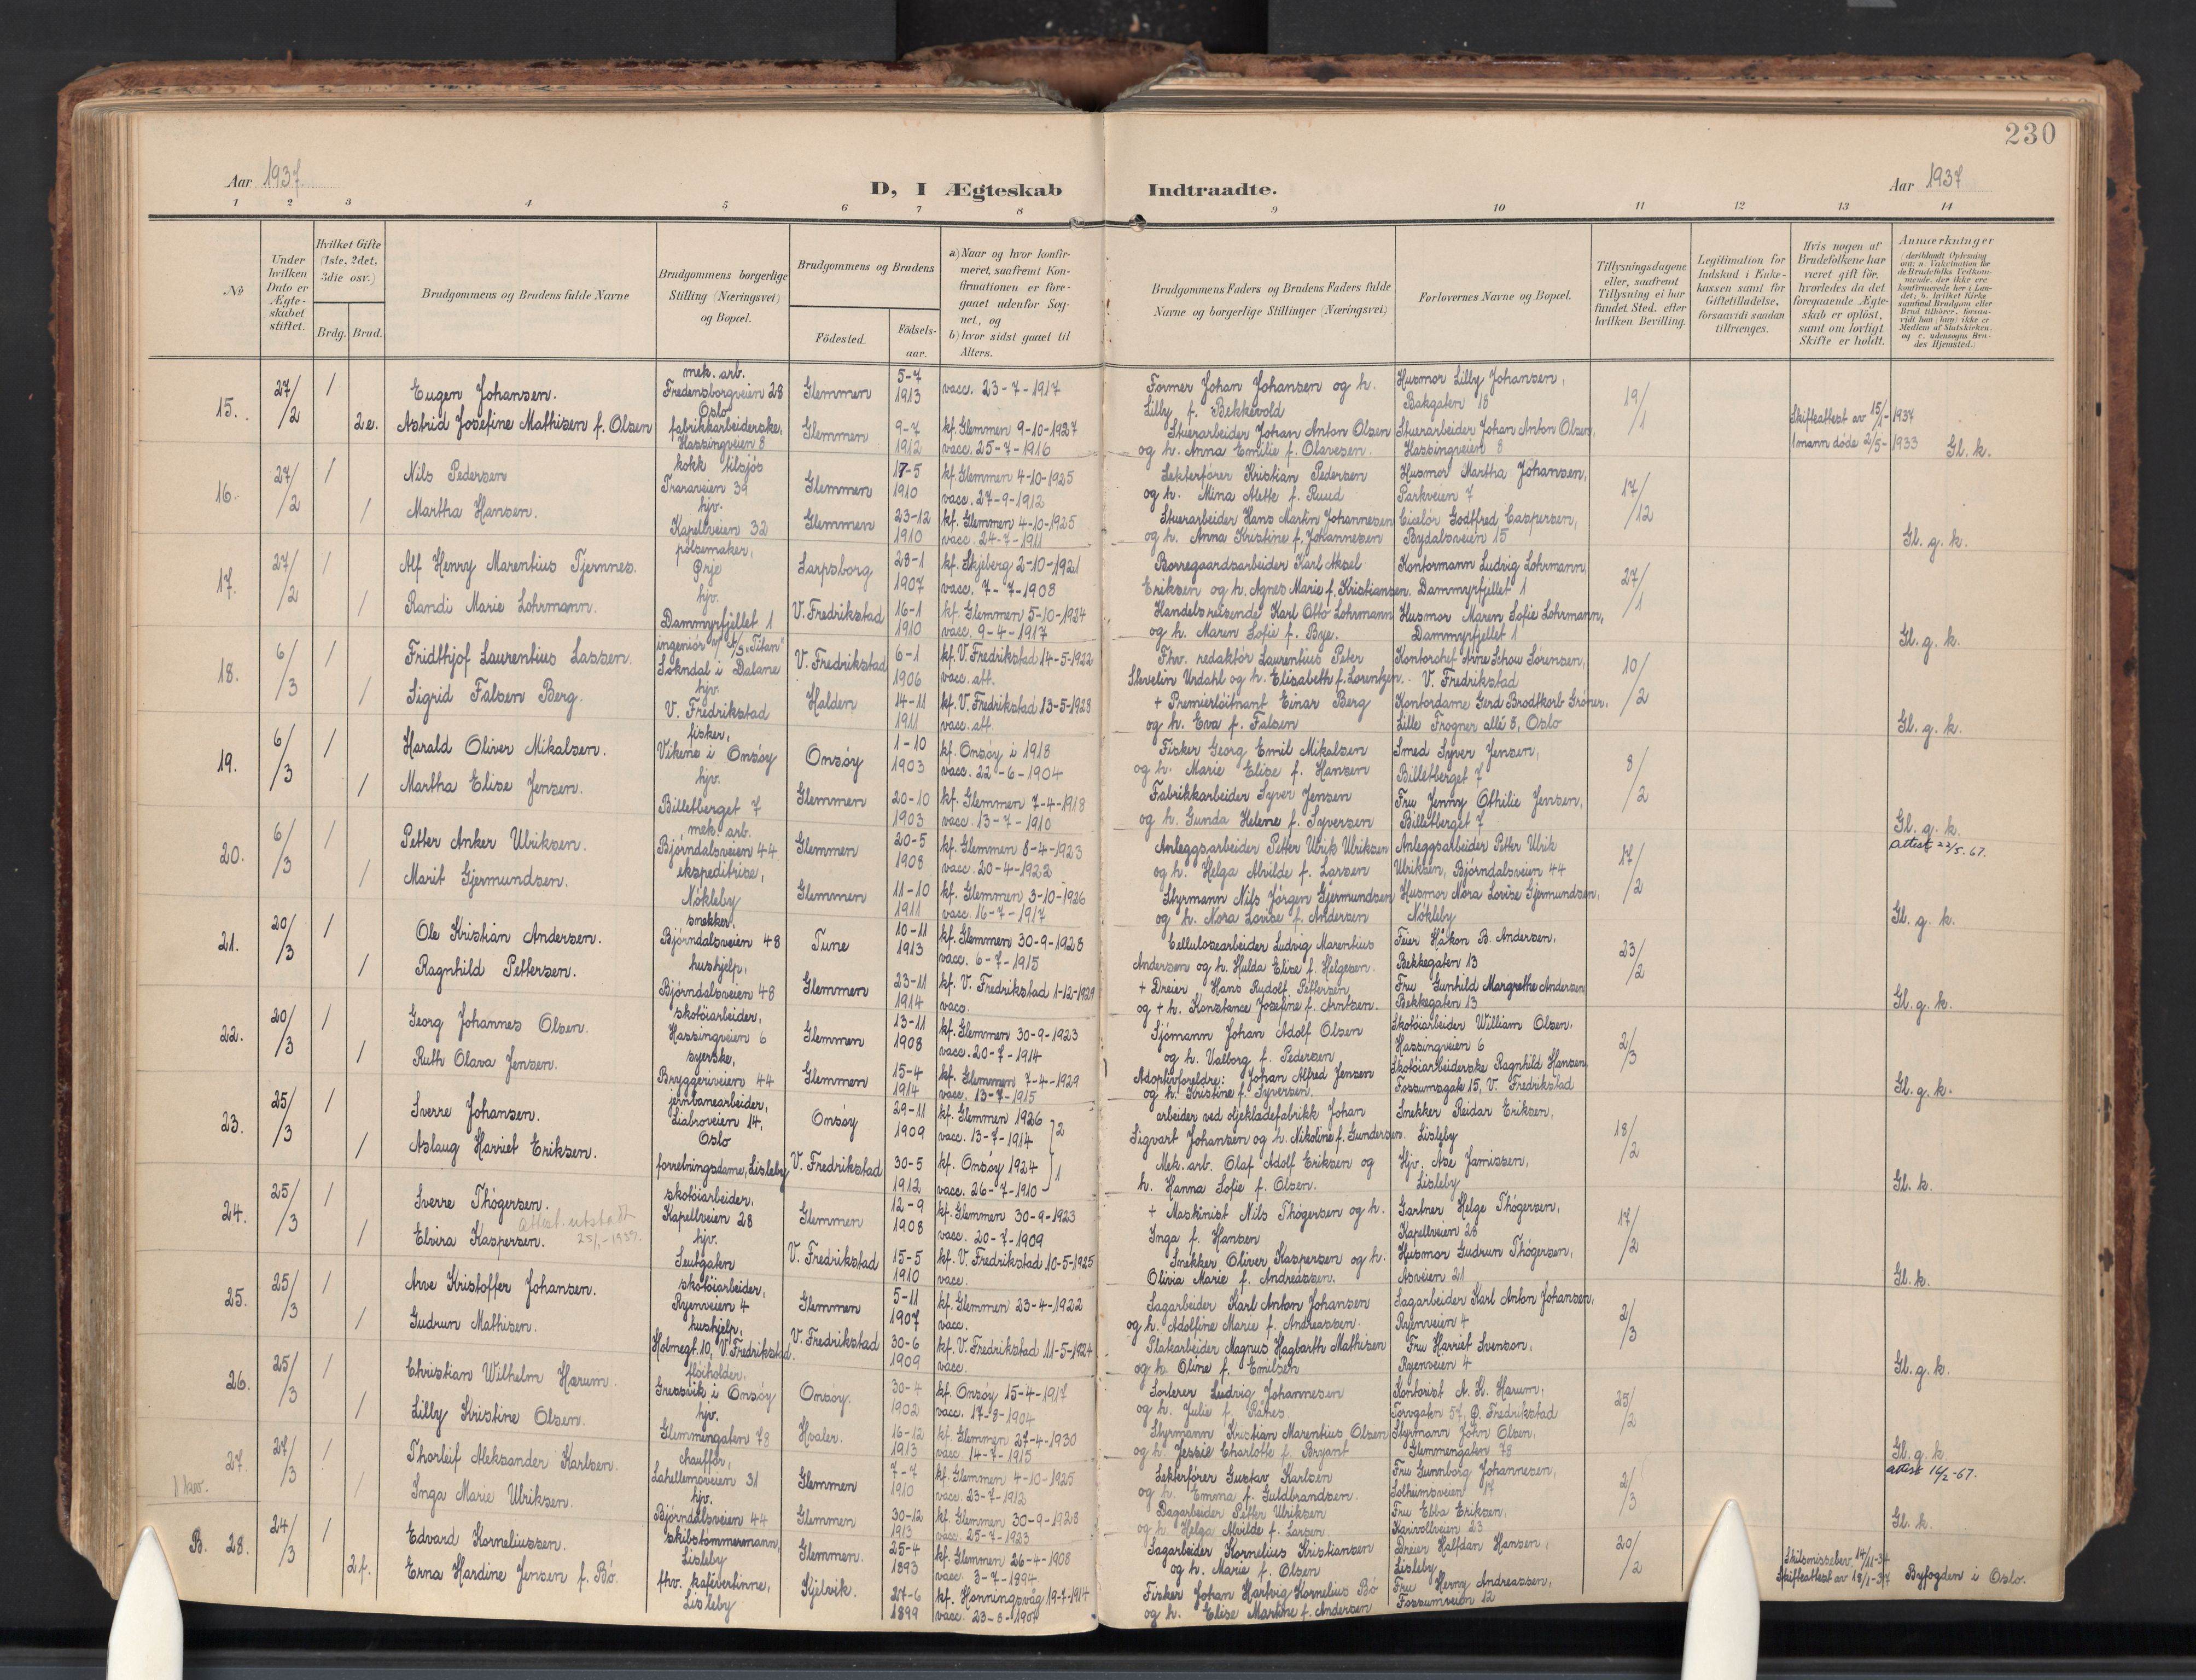 230
Aar 1937.
D, I Ægteskab Indtraadte.
Aar 1937
1 2 3 4 5 6 7 8 9 10 11 12 13 14
№
Under hvilken Dato er Ægte-skabet stiftet.
Hvilket Gifte (1ste, 2det, 3die osv.)
Brdg. Brud.
Brudgommens og Brudens fulde Navne
Brudgommens borgerlige Stilling (Næringsvei) og Bopæl.
Brudgommens og Brudens
Fødested. Fødsels-aar.
a) Naar og hvor konfir-meret, saafremt Kon-firmationen er fore-gaaet udenfor Sog-net, og
b) hvor sidst gaaet til Alters.
Brudgommens Faders og Brudens Faders fulde Navne og borgerlige Stillinger (Næringsvei)
Forlovernes Navne og Bopæl.
Tillysningsdagene eller, saafremt Tillysning ei har fundet Sted, efter hvilken Bevilling.
Legitimation for Indskud i Enke-kassen samt for Giftetilladelse, forsaavidt saadan tiltrænges.
Hvis nogen af Brudefolkene har været gift før, hvorledes da det foregaaende Ægte-skab er opløst, samt om lovligt Skifte er holdt.
Anmærkninger (deriblandt Oplysning om: a. Vakcination for de Brudefolks Vedkom-mende, der ikke ere konfirmerede her i Lan-det; b. hvilket Kirke-samfund Brudgom eller Brud tilhører, forsaa-vidt han (hun) ikke er Medlem af Statskirken, og c. udensogns Bru-des Hjemsted.)
15. 27/2 1 Eugen Johansen. mek. arb. Fredensborgveien 28 Oslo Glemmen 5-7 1913 vacc. 23-7-1917 Former Johan Johansen og h. Lilly f. Bekkevold Husmor Lilly Johansen, Bakgaten 18 19/1
2e. Astrid Josefine Mathisen f. Olsen fabrikkarbeiderske, Hassingveien 8 Glemmen 9-7 1912 kf. Glemmen 9-10-1927 vacc. 25-7-1916 Stuerarbeider Johan Anton Olsen og h. Anna Emilie f. Olavesen. Stuerarbeider Johan Anton Olsen, Hassingveien 8 Skifteattest av 15/1-1937 1 mann døde 2/5-1933 Gl. k.
16. 27/2 1 Nils Pedersen kokk tilsjøs Traraveien 39 Glemmen 17-5 1910 kf. Glemmen 4-10-1925 vacc. 27-9-1912 Lekterfører Kristian Pedersen og h. Mina Alette f. Ruud Husmor Martha Johansen, Parkveien 7 17/12
1 Martha Hansen. hjv. Kapellveien 32 Glemmen 23-12 1910 kf. Glemmen 4-10-1925 vacc. 24-7-1911 Stuerarbeider Hans Martin Johannesen og h. Anna Kristine f. Johannesen Ciselør Godtfred Caspersen, Bydalsveien 15 Gl. g. k.
17. 27/2 1 Alf Henry Marentius Tjernnes. pølsemaker, Prje Sarpsborg 28-1 1907 kf. Skjeberg 2-10-1921 vacc. 7-7-1908 Borregaardsarbeider Karl Aksel Eriksen og h. Agnes Marie f. Kristiansen. Kontormann Ludvig Lohrmann, Dammyrfjellet 1 27/1
1 Randi Marie Lohrmann. hjv. Dammyrfjellet 1 V. Fredrikstad 16-1 1910 kf. Glemmen 5-10-1924 vacc. 9-4-1917 Handelsreisende Karl Otto Lohrmann og h. Maren Sofie f. Bye. Husmor Maren Sofie Lohrmann, Dammyrfjellet 1 Gl. g. k.
18. 6/3 1 Fridthjof Laurentius Lassen. ingeniør v/ A/S "Titan" Sokndal i Dalane V. Fredrikstad 6-1 1906 kf. V. Fredrikstad 14-5-1922 vacc. att. Fhv. redaktør Laurentius Peter Skevelin Urdahl og h. Elisabeth f. Lorentzen. Kontorchef Arne Schou Sørensen, V. Fredrikstad 10/2
1 Sigrid Falsen Berg. hjv. V. Fredrikstad Halden 14-11 1911 kf. V. Fredrikstad 13-5-1928 vacc. att. + Premierløitnant Einar Berg og h. Eva f. Falsen Kontordame Gerd Brodtkorb Grøner, Lille Frogner allé 5, Oslo Gl. g. k.
19. 6/3 1 Harald Oliver Mikalsen. fisker, Vikene i Onsøy Onsøy 1-10 1903 kf. Onsøy i 1918 vacc. 22-6-1904 Fisker Georg Emil Mikalsen og h. Marie Elise f. Hansen Smed Syver Jensen, Billetberget 7 8/2
1 Martha Elise Jensen. hjv. Billetberget 7 Glemmen 20-10 1903 kf. Glemmen 7-4-1918 vacc. 13-7-1910 Fabrikkarbeider Syver Jensen og h. Gunda Helene f. Syversen Fru Jenny Othilie Jensen, Billetberget 7 Gl. g. k.
20. 6/3 1 Petter Anker Ulriksen. mek. arb. Bjørndalsveien 44 Glemmen 20-5 1908 kf. Glemmen 8-4-1923 vacc. 20-4-1922 Anleggsarbeider Petter Ulrik Ulriksen og h. Helga Alvilde f. Larsen Anleggsarbeider Petter Ulrik Ulriksen, Bjørndalsveien 44 17/2 attest 22/5.67.
1 Marit Gjermundsen. ekspeditrise, Nøkleby Glemmen 11-10 1911 kf. Glemmen 3-10-1926 vacc. 16-7-1917 Styrmann Nils Jørgen Gjermundsen og h. Nora Lovise f. Andersen Husmor Nora Lovise Gjermundsen, Nøkleby Gl. g. k.
21. 20/3 1 Ole Kristian Andersen. snekker, Bjørndalsveien 48 Tune 10-11 1913 kf. Glemmen 30-9-1928 vacc. 6-7-1915 Cellulosearbeider Ludvig Marentius Andersen og h. Hulda Elise f. Helgesen. Feier Håkon B. Andersen, Bekkegaten 13 23/2
1 Ragnhild Pettersen. hushjelp, Bjørndalsveien 48 Glemmen 23-11 1914 kf. V. Fredrikstad 1-12-1929 vacc. + Dreier Hans Rudolf Pettersen og + h. Konstance Josefine f. Arntsen. Fru Gunhild Margrethe Andersen Bekkegaten 13 Gl. g. k.
22. 20/3 1 Georg Johannes Olsen. skotøiarbeider, Hassingveien 6 Glemmen 13-11 1908 kf. Glemmen 30-9-1923 vacc. 20-7-1914 Sjømann Johan Adolf Olsen og h. Valborg f. Pedersen Skotøiarbeider William Olsen, Hassingveien 6 2/3
1 Ruth Olava Jensen. syerske, Bryggeriveien 44 Glemmen 15-4 1914 kf. Glemmen 7-4-1929 vacc. 13-7-1915 Adoptivforeldre: Johan Alfred Jensen og h. Kristine f. Syversen. Skotøiarbeiderske Ragnhild Hansen, Fossumsgate 15, V. Fredrikstad Gl. g. k.
23. 25/3 1 Sverre Johansen. jernbanearbeider, Liabroveien 14, Oslo Onsøy 29-11 1909 kf. Glemmen 1926 vacc. 13-7-1914 2 arbeider ved oljeklædefabrikk Johan Sigvart Johansen og h. Nikoline f. Gundersen. Snekker Reidar Eriksen, Lisleby 18/2
1 Aslaug Harriet Eriksen. forretningsdame, Lisleby V. Fredrikstad 30-5 1912 kf. Onsøy 1924 vacc. 26-7-1910 1 Mek. arb. Olaf Adolf Eriksen og h. Hanna Sofie f. Olsen. Hjv. Ase Jamissen, Lisleby Gl. k.
24. 25/3 1 Sverre Thøgersen. skotøiarbeider, Kapellveien 28 Glemmen 12-9 1908 kf. Glemmen 30-9-1923 vacc. 20-7-1909 + Maskinist Nils Thøgersen og h. Inga f. Hansen Gartner Helge Thøgersen, Kapellveien 28 17/2
attest utstedt 25/1-1939.
1 Elvira Kaspersen. hjv. Seutgaten V. Fredrikstad 15-5 1910 kf. V. Fredrikstad 10-5-1925 vacc. Snekker Oliver Kaspersen og h. Olivia Marie f. Andreassen. Husmor Gudrun Thøgersen, Asveien 21 Gl. k.
25. 25/3 1 Arve Kristoffer Johansen. skotøiarbeider, Ryenveien 4 Glemmen 5-11 1907 kf. Glemmen 23-4-1922 vacc. Sagarbeider Karl Anton Johansen og h. Adolfine Marie f. Andreassen. Sagarbeider Karl Anton Johansen, Ryenveien 4 2/3
1 Gudrun Mathisen. hushjelp, Holmegt. 10, V. Fredrikstad. V. Fredrikstad 30-6 1909 kf. V. Fredrikstad 11-5-1924 vacc. Platearbeider Magnus Hagbarth Mathisen og h. Oline f. Emilsen Fru Harriet Svenson, Ryenveien 4 Gl. g. k.
26. 25/3 1 Christian Wilhelm Harum. fløiholder, Gressvik i Onsøy Onsøy. 30-4 1902 kf. Onsøy 15-4-1917 vacc. 17-8-1904 Sorterer Ludvig Johannesen og h. Julie f. Rånes Kontorist A. K. Harum, Torvgaten 57, Ø. Fredrikstad 25/2
1 Lilly Kristine Olsen. hjv. Glemmengaten 78 Hvaler. 16-12 1913 kf. Glemmen 27-4-1930 vacc 14-7-1915 Styrmann Kristian Marentius Olsen og h. Jessie Charlotte f. Bryant Styrmann John Olsen, Glemmengaten 78 Gl. g. k.
27. 27/3 1 Thorleif Aleksander Karlsen. chauffør, Lahellemoveien 31 Glemmen 7-7 1910 kf. Glemmen 4-10-1925 vacc. 23-7-1912 Lekterfører Gustav Karlsen og h. Emma f. Guldbrandsen. Fru Gunnborg Johannesen, Solheimsveien 17 2/3 attest 16/2-67.
1 Inga Marie Ulriksen. hjv. Bjørndalsveien 44 Glemmen 30-12 1913 kf. Glemmen 30-9-1928 vacc. 25-7-1923 Dagarbeider Petter Ulriksen og h. Helga Alvilde f. Larsen. Fru Ebba Eriksen, Karivollveien 23 Gl. k.
B. 28. 24/3 1 Edvard Korneliussen. skibstømmermann, Lisleby Glemmen. 25-4 1893 kf. Glemmen 26-4-1908 vacc. 3-7-1894 Sagarbeider Kornelius Kristiansen og h. Marie f. Olsen Dreier Halfdan Hansen, Lisleby 20/2
2f. Erna Hardine Jensen f. Bø. fhv. kafévertinne, Lisleby Kjelvik. 27-6 1899 kf. Honningsvåg 19-7-1914 vacc. 23-8-1901 Fisker Johan Hartvig Kornelius Bø og h. Elise Martine f. Andersen Fru Herny Andreassen, Fossumveien 12 Skilsmissebev. 14/11-34 Skifteattest av 18/1-37 Byfogden i Oslo.